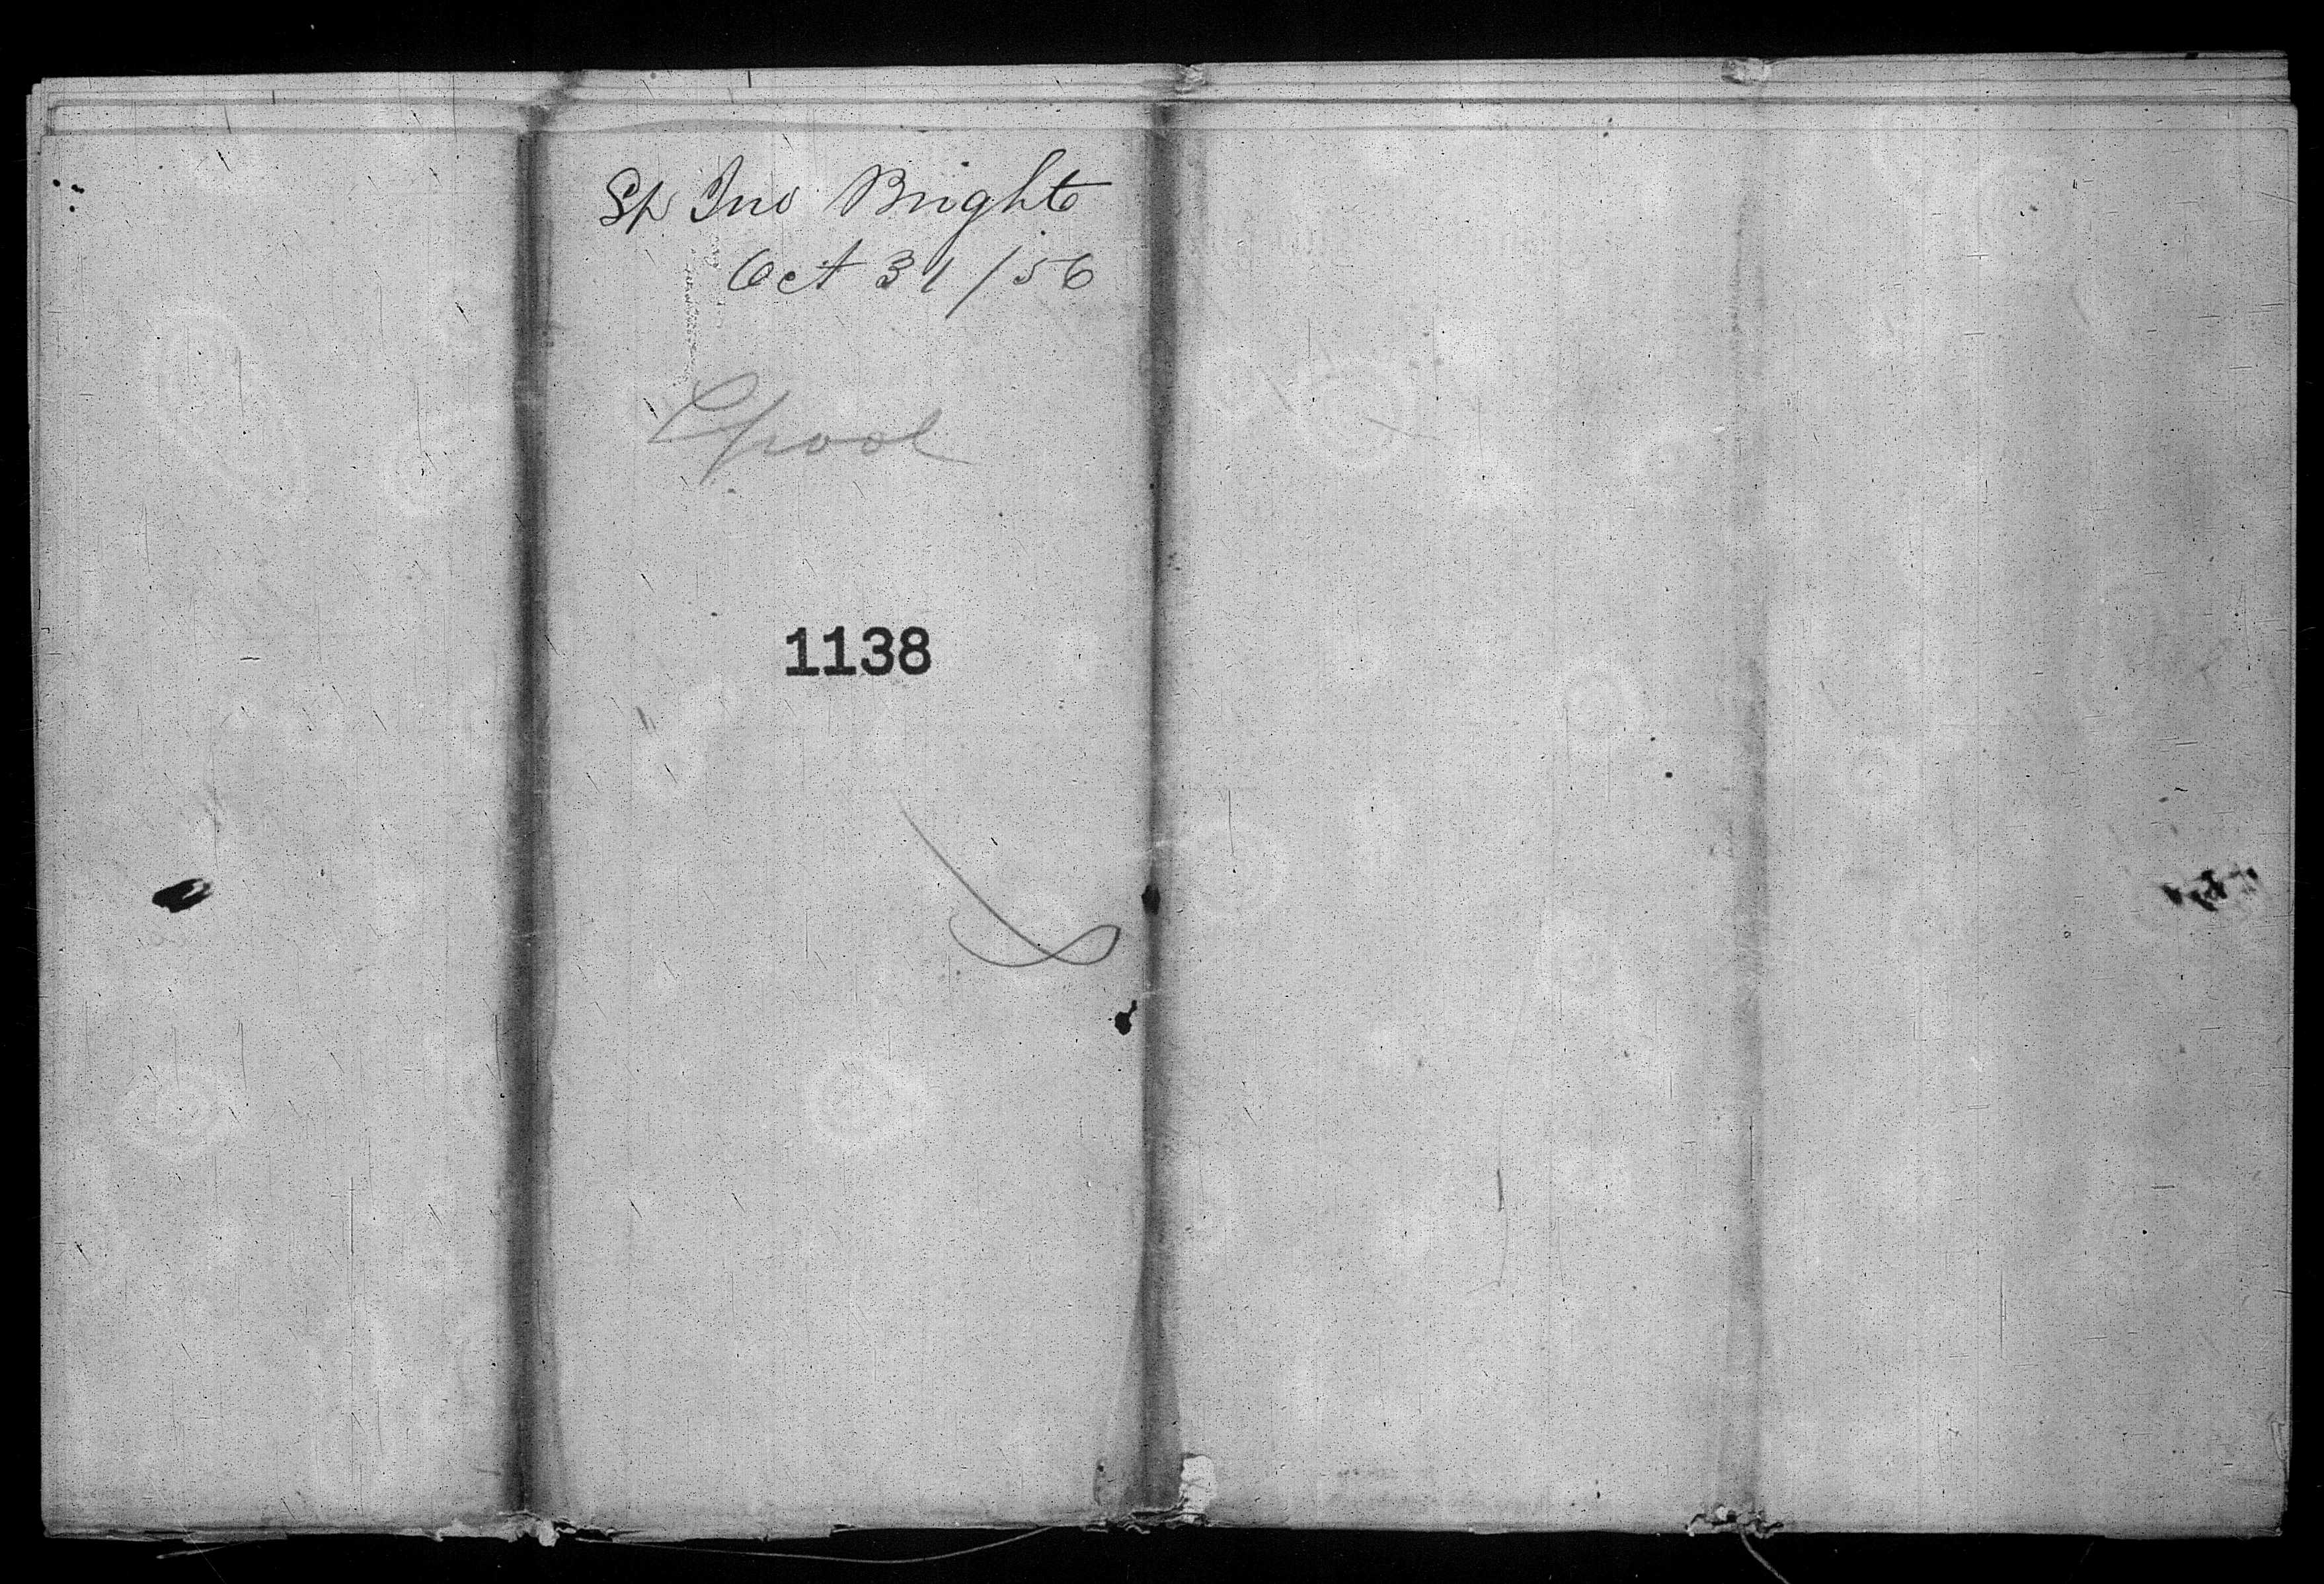 Sp Jno Bright
Oct 31/56
Lpool
1138